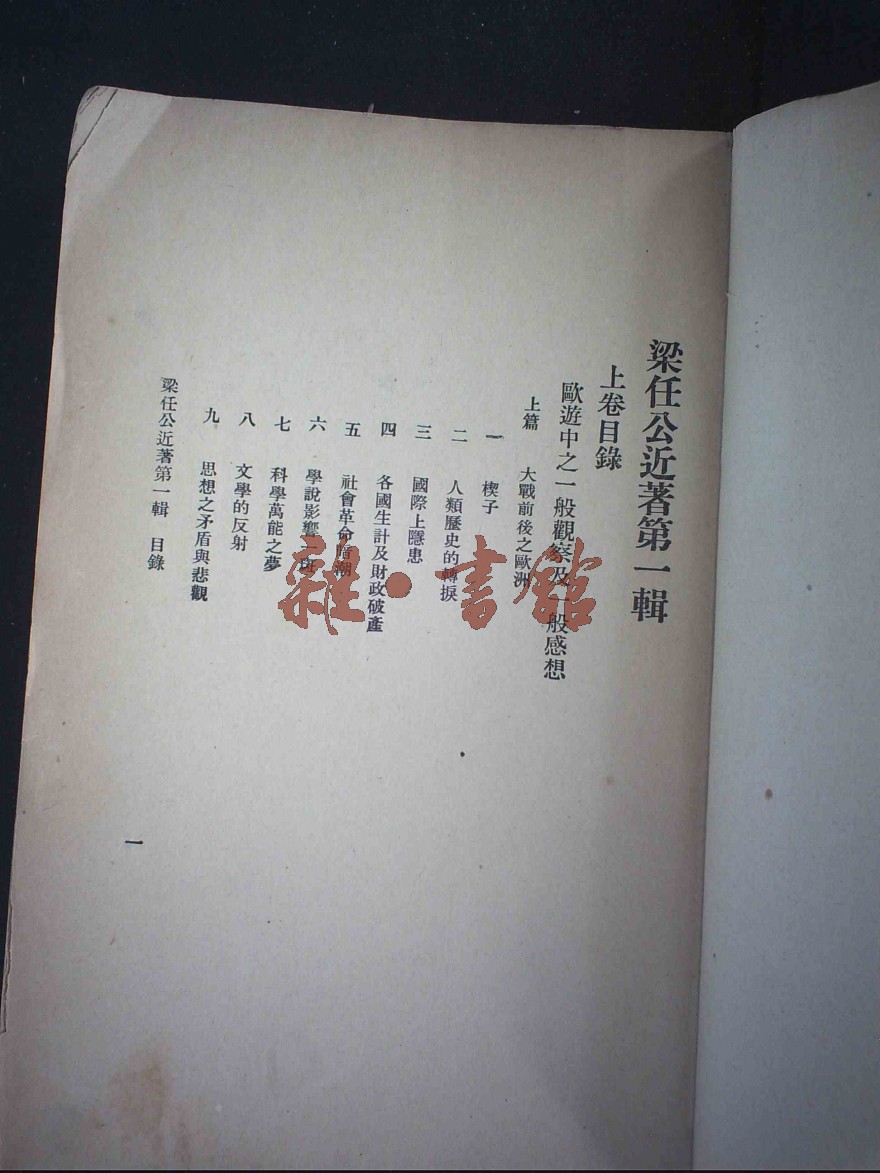 梁任公近著第一輯
上卷目錄
歐遊中之一般觀察及 般感想
上篇 大戰前後之歐洲
一 楔子
二 人類歷史的轉捩
三 國際上隱患
四 各國生計及財政破產
五 社會革命暗潮
六 學說影響一斑
七 科學萬能之夢
八 文學的反射
九 思想之矛盾與悲觀
梁任公近著第一輯 目錄
一
雜·書館